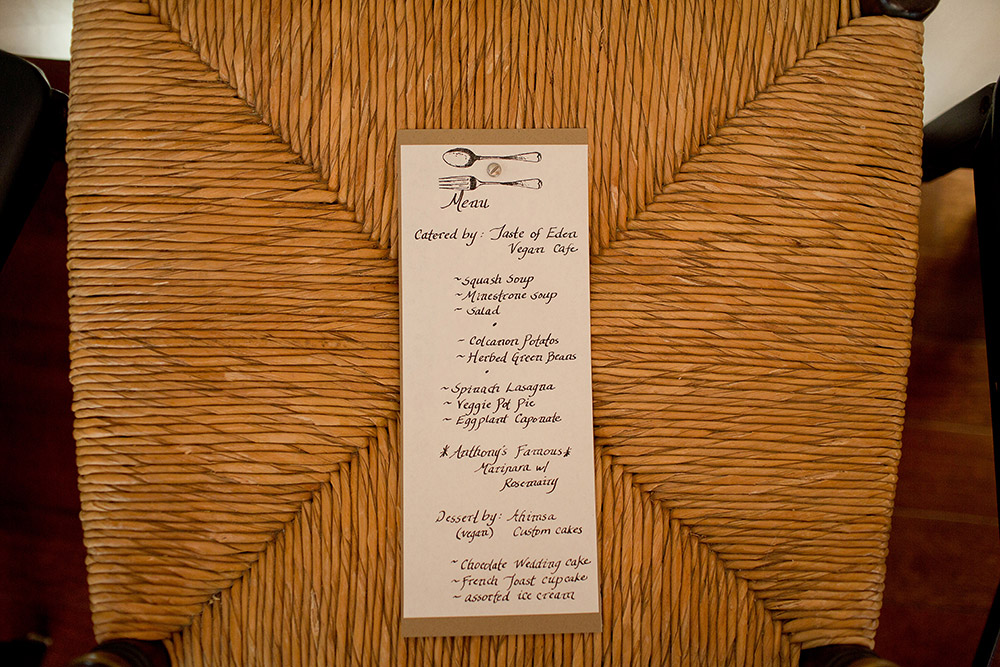 Menu
Catered by: Taste of Eden
Vegan Cafe
~ Squash Soup
~ Minestrone Soup
~ Salad
- Colcanon Potatos
~ Herbed Green Beans
~ Spinach Lasagna
~ Veggie Pot Pie
~ Eggplant Caponate
* Anthony's Famous *
Marinara w/
Rosemairy
Dessert by: Ahimsa
(vegan) Custom cakes
~ Chocolate Wedding cake
~ French Toast cupcake
~ assorted ice cream